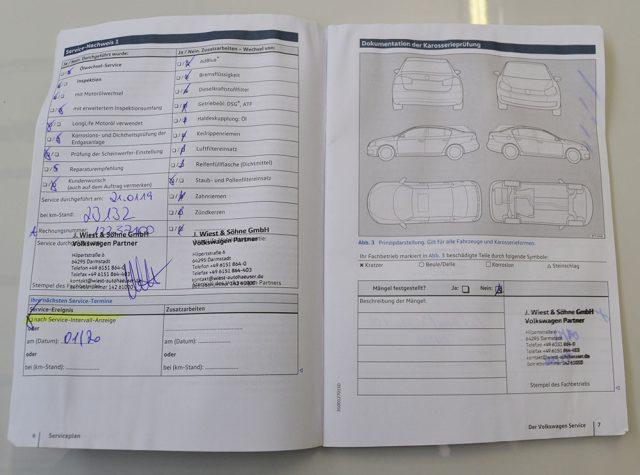 Service-Nachweis 1
Ja / Nein, Durchgeführt wurde:
Ja / Nein, Zusatzarbeiten – Wechsel von:
Ölwechsel-Service
AdBlue®
Inspektion
Bremsflüssigkeit
mit Motorölwechsel
Dieselkraftstofffilter
mit erweitertem Inspektionsumfang
Getriebeöl: DSG®, ATF
LongLife Motoröl verwendet
Haldexkupplung: Öl
Korrosions- und Dichtheitsprüfung der Erdgasanlage
Keilrippenriemen
Prüfung der Scheinwerfer-Einstellung
Luftfiltereinsatz
Reparaturempfehlung
Reifenfüllflasche (Dichtmittel)
Kundenwunsch
(auch auf dem Auftrag vermerken)
Staub- und Pollenfiltereinsatz
Service durchgeführt am: 21.01.19
Zahnriemen
bei km-Stand: 20132
Zündkerzen
Rechnungsnummer:
J. Wiest & Söhne GmbH
Volkswagen Partner
Hilpertstraße 6
64295 Darmstadt
Telefon +49 6151 864-0
Telefax +49 6151 864-403
kontakt@wiest-autohaeuser.de
Stempel des
J. Wiest & Söhne GmbH
Volkswagen Partner
Hilpertstraße 6
64295 Darmstadt
Telefon +49 6151 864-0
Telefax +49 6151 864-403
kontakt@wiest-autohaeuser.de
Partners
Ihre nächsten Service-Termine
Service-Ereignis
Zusatzarbeiten
nach Service-Intervall-Anzeige
oder
am (Datum): 01/20
am (Datum):
oder
oder
bei (km-Stand):
bei (km-Stand):
6 Serviceplan
Dokumentation der Karosserieprüfung
Abb. 3 Prinzipdarstellung. Gilt für alle Fahrzeuge und Karosserieformen.
Ihr Fachbetrieb markiert in Abb. 3 beschädigte Teile durch folgende Symbole:
× Kratzer
○ Beule/Delle
□ Korrosion
△ Steinschlag
Mängel festgestellt?
Ja:
Nein:
Beschreibung der Mängel:
J. Wiest & Söhne GmbH
Volkswagen Partner
Hilpertstraße 6
64295 Darmstadt
Telefon +49 6151 864-0
Telefax +49 6151 864-403
kontakt@wiest-autohaeuser.de
Betriebsnummer 142 61000
Stempel des Fachbetriebs
Der Volkswagen Service 7